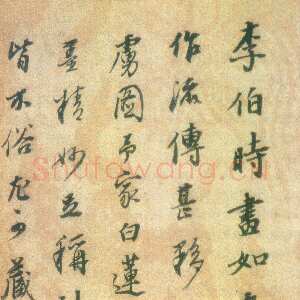 李伯時畫如
作流傳甚
虜圖予家白蓮
精妙並稱
皆不俗尤可藏
Shufawang.cn